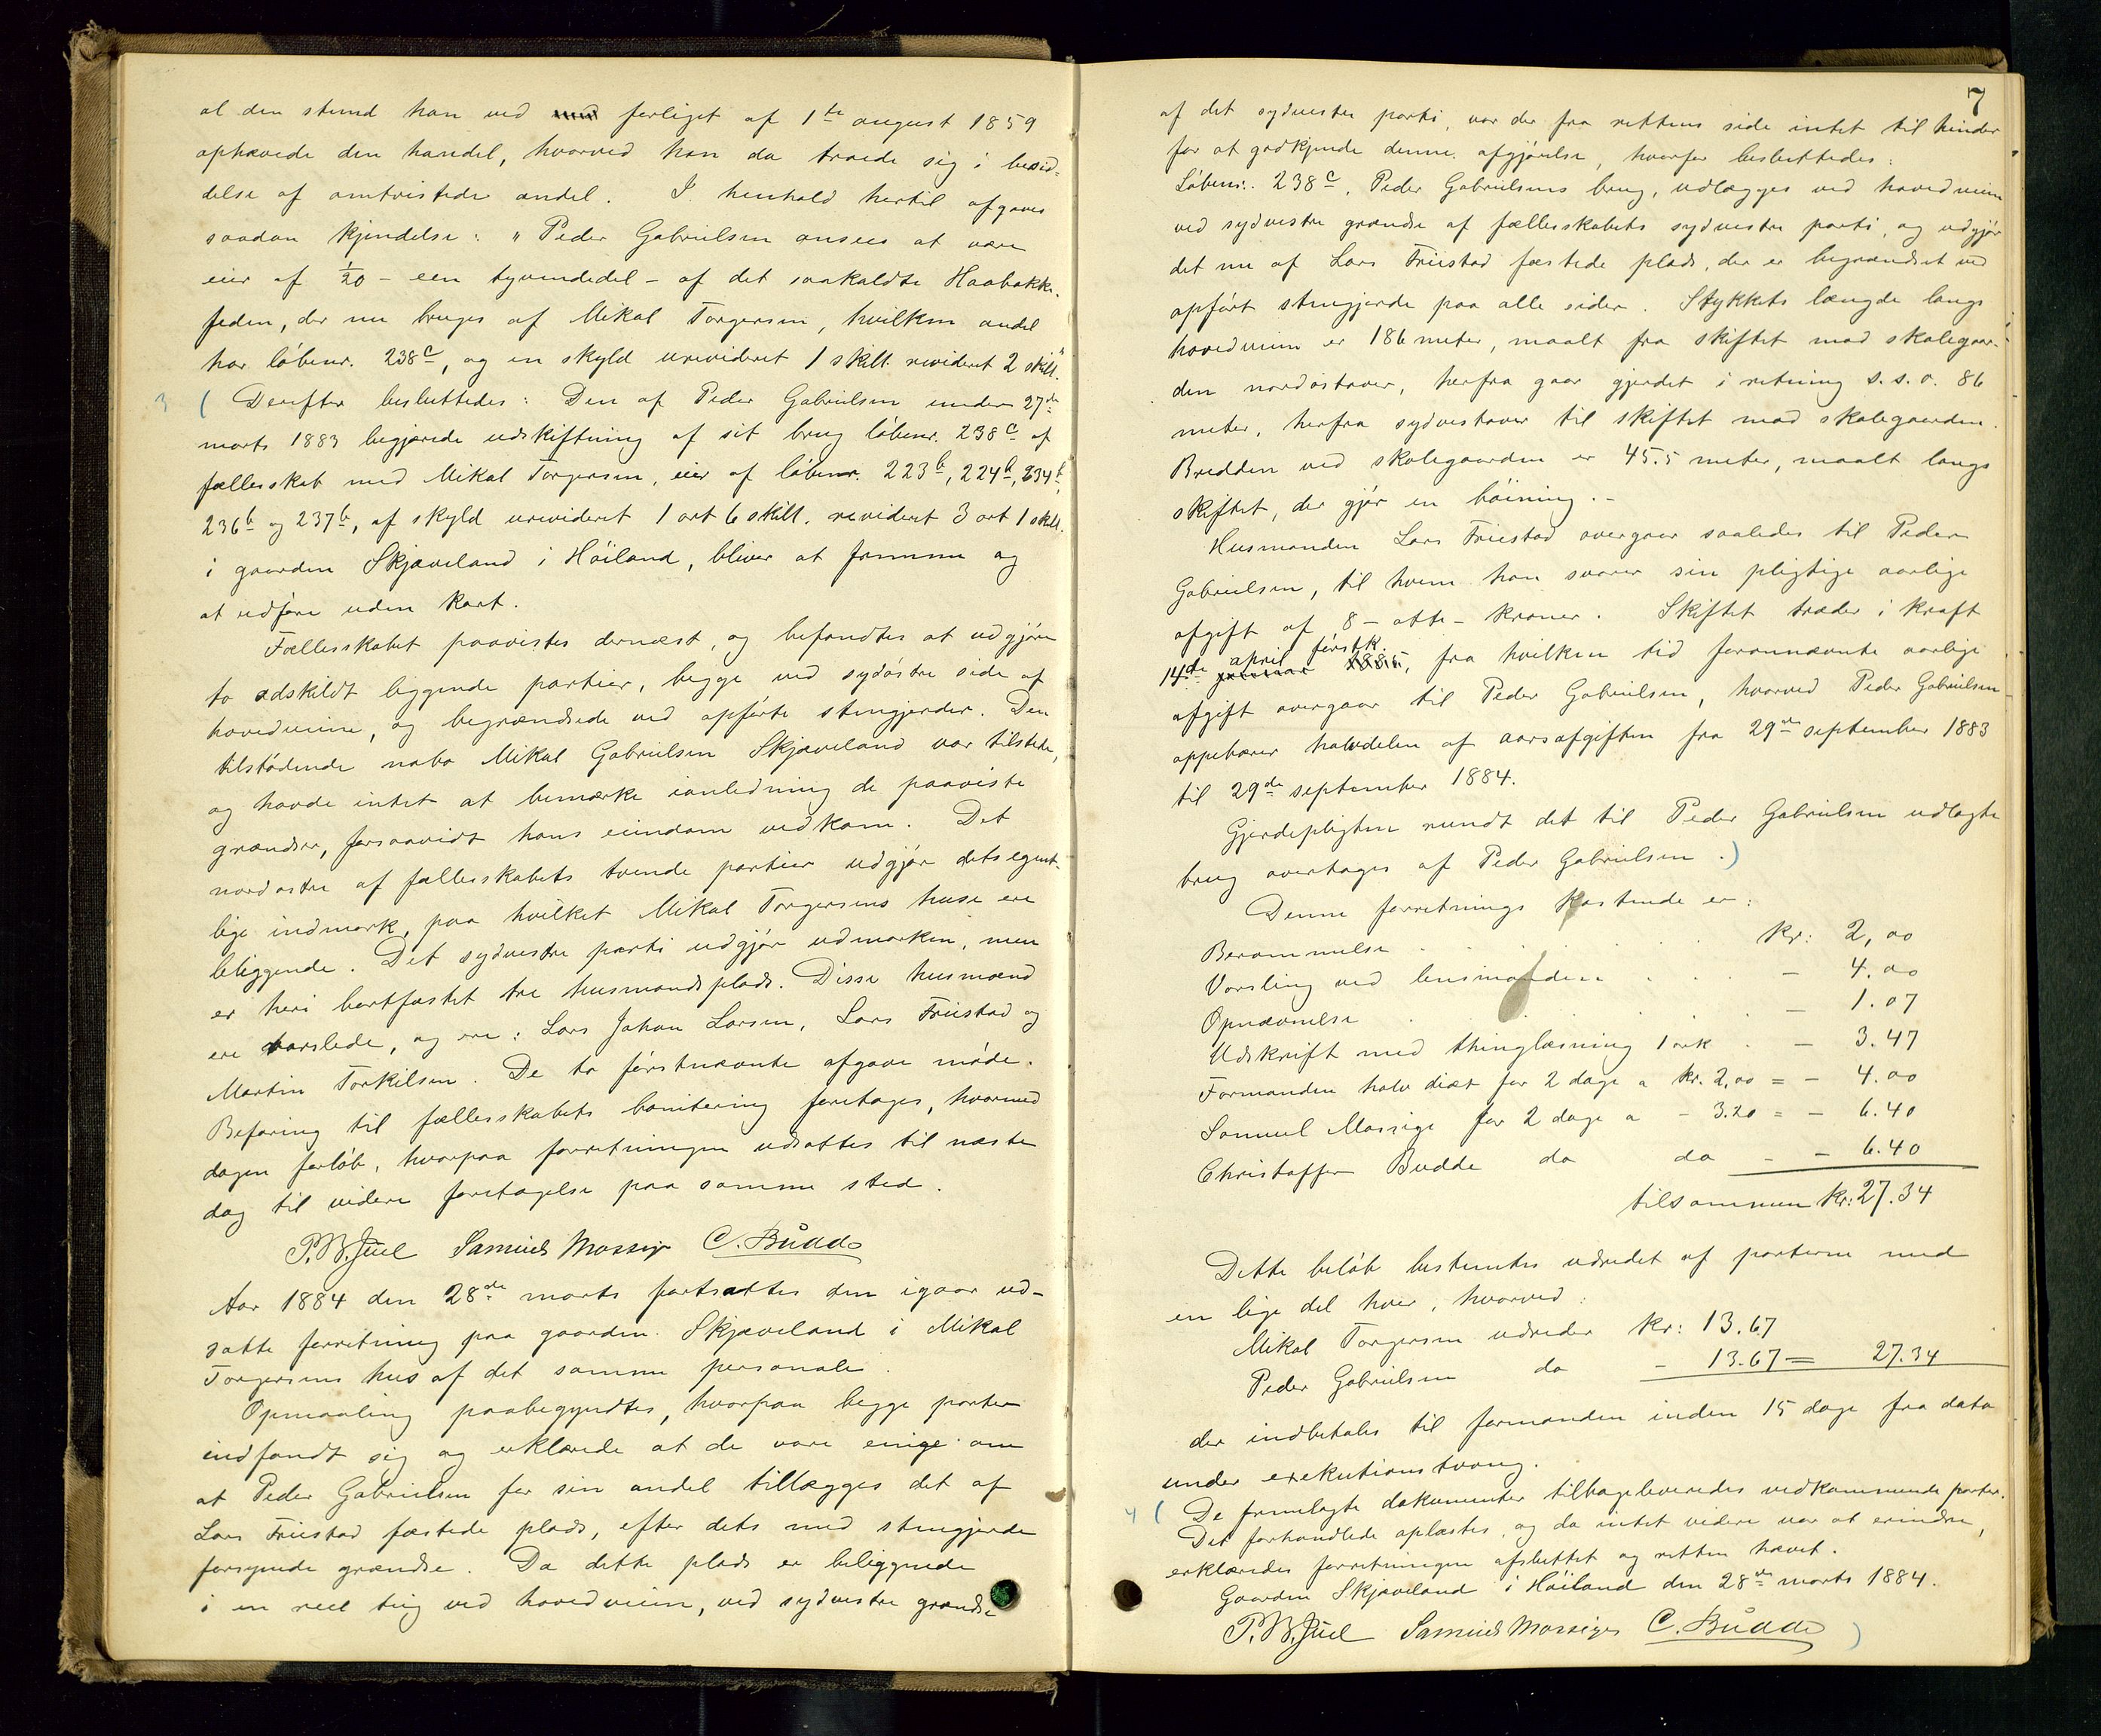 al den stund han ved med forliget af 1te august 1859
ophævede den handel, hvorved han da traede sig i besid-
delse af omtvistede andel. I henhold hertil afgaves
saadan kjendelse: "Peder Gabrielsen ansees at være
eier af 1/20 - een tyvendedel - af det saakaldte Haabakke-
feden, der nu bruges af Mikal Torgersen, hvilken andel
har löbenr. 238c, og en skyld urevideret 1 skill. revideret 2 skill."
3 ( Derefter besluttedes: Den af Peder Gabrielsen under 27de
marts 1883 begjærede udskiftning af sit brug löbenr. 238c af
fællesskab med Mikal Torgersen, eier af löbenr. 223b, 224b, 234b,
236b og 237b, af skyld urevideret 1 ort 6 skill. revideret 3 ort 1 skill.
i gaarden Skjæveland i Höiland, bliver at fremme og
at udföre uden kart.
Fællesskabet paavistes dernæst, og befandtes at udgjöre
to adskildt liggende partier, begge ved sydöstre side af
hovedveien, og begrændsede ved opförte stengjerder. Den
tilstödende nabo Mikal Gabrielsen Skjæveland var tilstede,
og havde intet at bemærke ianledning de paaviste
grændser, forsaavidt hans eiendom vedkom. Det
nordostre af fællesskabets tvende partier udgjör dets egent-
lige indmark, paa hvilket Mikal Torgersens huse ere
beliggende. Det sydvestre parti udgjör udmarken, men
er heri bortfæstet tre husmandsplads. Disse husmænd
ere varslede, og ere: Lars Johan Larsen, Lars Friestad og
Martin Torkilsen. De to förstnævnte afgave möde.
Befaring til fællesskabets bonitering foretages, hvormed
dagen forlöb, hvorpaa forretningen udsattes til næste
dag til videre foretagelse paa samme sted.
P.W.Juel Samuel Mossige C. Budde
Aar 1884 den 28de marts fortsattes den igaar ud-
satte forretning paa gaarden Skjæveland i Mikal
Torgersens hus af det samme personale.
Opmaaling paabegyndtes, hvorpaa begge parter
indfandt sig og erklærede at de vare enige om
at Peder Gabrielsen for sin andel tillægges det af
Lars Friestad fæstede plads, efter dets med stengjerde
forsynede grændse. Da dette plads er beliggende
i en reel teig ved hovedveien, ved sydvestre grændse
7
af det sydvestre parti, var der fra rettens side intet til hinder
for at godkjende denne afgjörelse, hvorfor besluttedes:
Löbenr. 238c, Peder Gabrielsens brug, udlægges ved hovedveien
ved sydvestre grændse af fællesskabets sydvestre parti, og udgjör
det nu af Lars Friestad fæstede plads, der er begrændset ved
opfört stengjerde paa alle sider. Stykkets længde langs
hovedveien er 186 meter, maalt fra skiftet mod skolegaar-
den nordöstover, herfra gaar gjerdet i retning s.s.o. 86
meter, herfra sydvestover til skiftet mod skolegaarden.
Bredden ved skolegaarden er 45.5 meter, maalt langs
skiftet, der gjör en böining.-
Husmanden Lars Friestad overgaar saaledes til Peder
Gabrielsen, til hvem han svarer sin pligtige aarlige
afgift af 8 - otte - kroner. Skiftet træder i kraft
14de april förstk. januaar 1885, fra hvilken tid forannævnte aarlige
afgift overgaar til Peder Gabrielsen, hvorved Peder Gabrielsen
oppebærer halvdelen af aarsafgiften fra 29de september 1883
til 29de september 1884.
Gjerdepligten rundt det til Peder Gabrielsen udlagte
brug overtages af Peder Gabrielsen.)
Denne forretnings kostende er:
Berammelse . . . . . kr: 2,00
Varsling ved lensmanden . . - 4.00
Opnævnelse . . . . . - 1.07
Udskrift med thinglæsning 1 ark . - 3.47
Formanden halv diæt for 2 dage a kr. 2,00 = - 4.00
Samuel Mossige for 2 dage a - 3.20 = - 6.40
Christoffer Budde do do - - 6.40
tilsammen kr: 27.34
Dette belöb bestemtes udredet af parterne med
en lige del hver, hvorved:
Mikal Torgersen udreder kr: 13.67
Peder Gabrielsen do - 13.67 = 27.34
der indbetales til formanden inden 15 dage fra dato
under exekutionstvang.
4 ( De fremlagte dokumenter tilbageleveredes vedkommende parter.
Det forhandlede oplæstes, og da intet videre var at erindre,
erklæredes forretningen afsluttet og retten hævet.
Gaarden Skjæveland i Höiland den 28de marts 1884.
P.W.Juel Samuel Mossiges C. Budde )